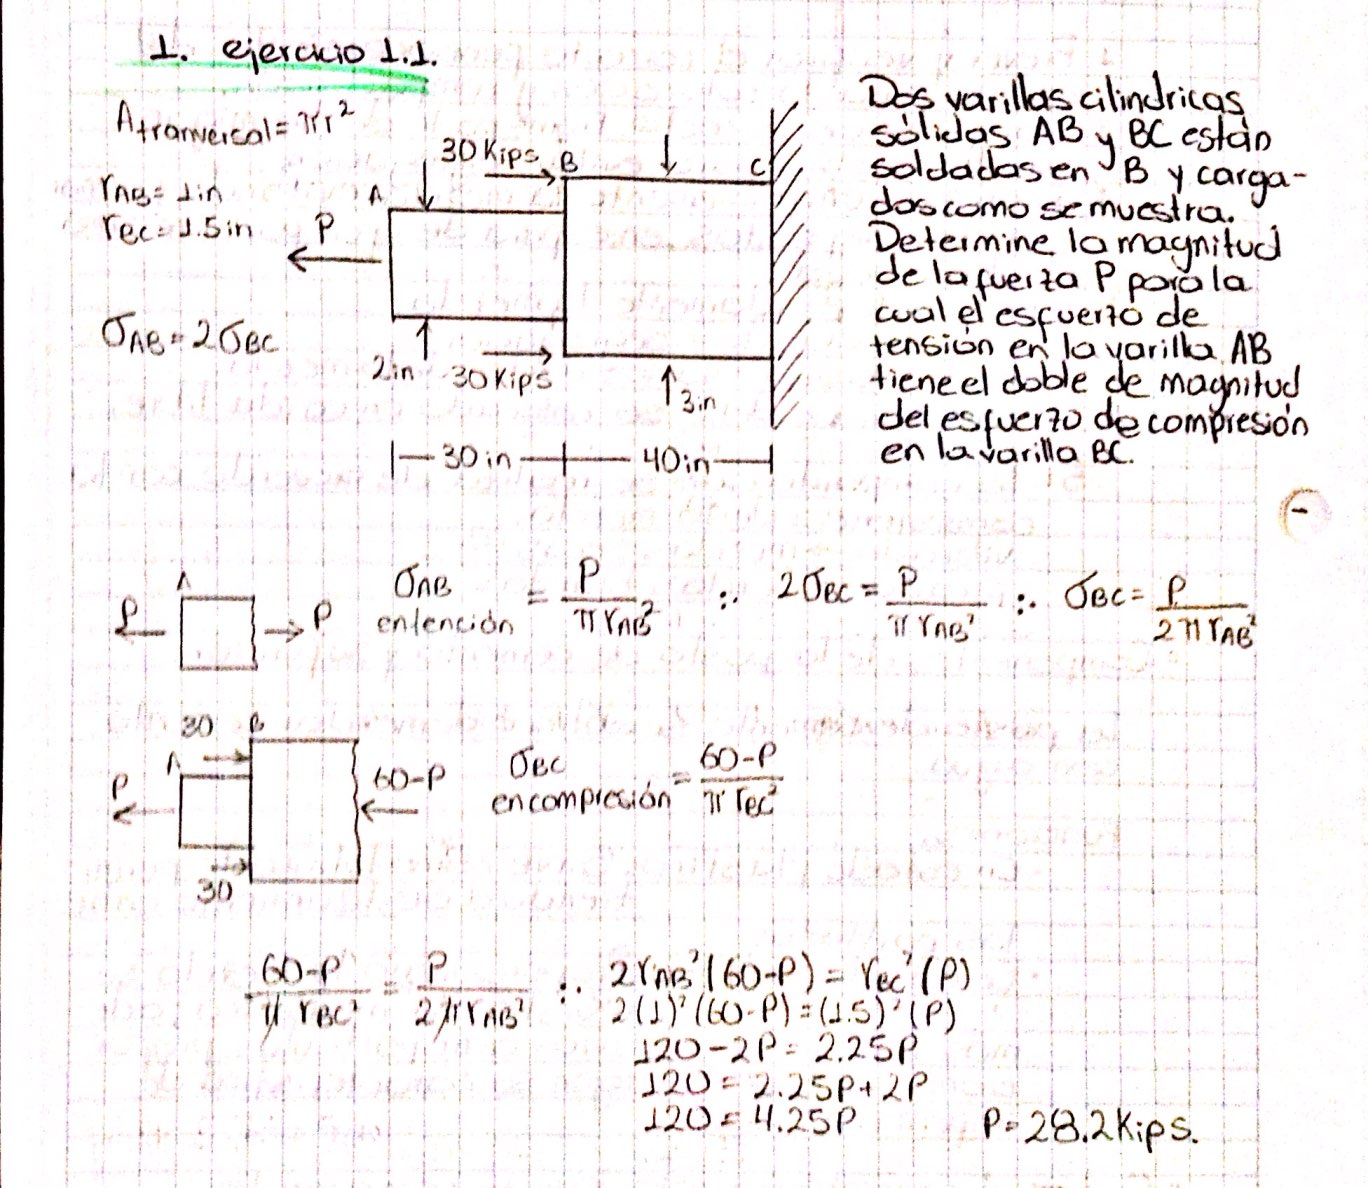 1. ejercicio 1.1.
Atranversal = πr²
rAB = 1in
rBC = 1.5in
σAB = 2σBC
30 Kips
A
B
C
P
2in
30 Kips
3in
30in
40in
Dos varillas cilindricas
sólidas AB y BC están
soldadas en B y carga-
das como se muestra.
Determine la magnitud
de la fuerza P para la
cual el esfuerzo de
tensión en la varilla AB
tiene el doble de magnitud
del esfuerzo de compresión
en la varilla BC.
-
A
P
P
σAB en tención = P / πrAB² ∴ 2σBC = P / πrAB² ∴ σBC = P / 2πrAB²
30
B
A
P
60-P
30
σBC en compresión = 60-P / πrBC²
60-P / πrBC² = P / 2πrAB² ∴ 2rAB²(60-P) = rBC²(P)
2(1)²(60-P) = (1.5)²(P)
120-2P = 2.25P
120 = 2.25P+2P
120 = 4.25P
P=28.2Kips.